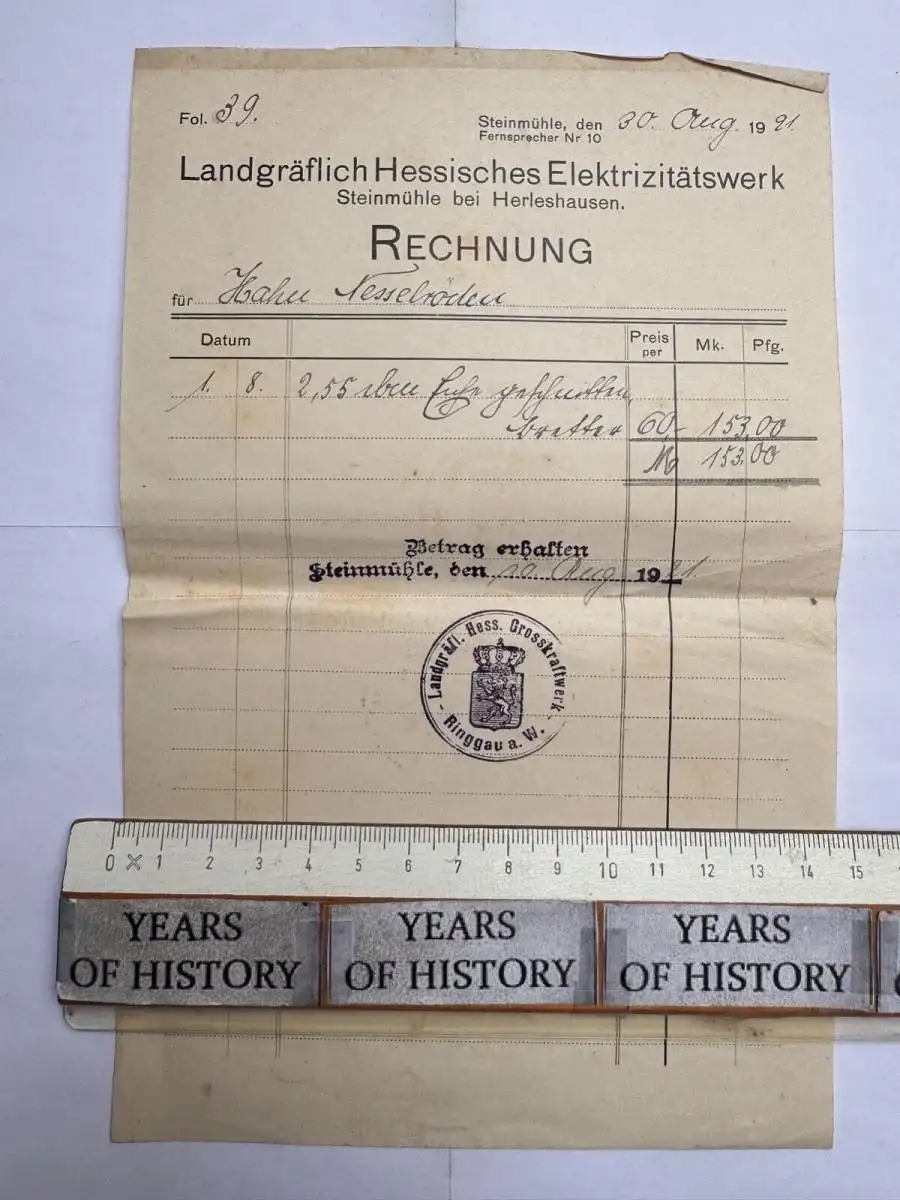 Fol. 39.
Steinmühle, den 30. Aug. 1921
Fernsprecher Nr. 10
Landgräflich Hessisches Elektrizitätswerk
Steinmühle bei Herleshausen.
RECHNUNG
für Hahn Nesselröden
Datum Preis per Mk. Pfg.
1. 8. 2,55 cbm Eiche geschnitten
Bretter 60,- 153,00
M 153,00
Betrag erhalten
Steinmühle, den Aug 1921.
Landgräfl. Hess. Grosskraftwerk
- Ringgau a. W. -
0 1 2 3 4 5 6 7 8 9 10 11 12 13 14 15
YEARS OF HISTORY
YEARS OF HISTORY
YEARS OF HISTORY